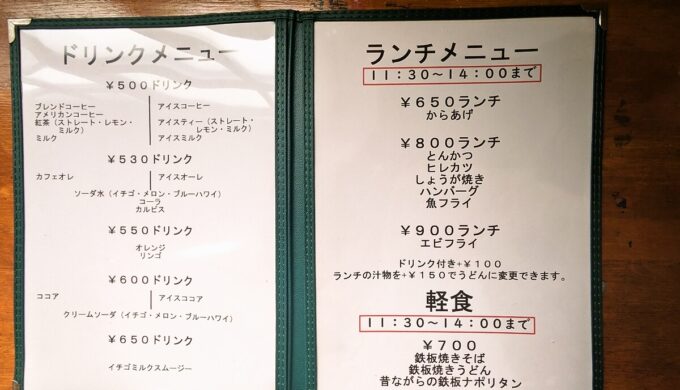 ドリンクメニュー
￥５００ドリンク
ブレンドコーヒー
アメリカンコーヒー
紅茶（ストレート・レモン・
ミルク）
ミルク
アイスコーヒー
アイスティー（ストレート・
レモン・ミルク）
アイスミルク
￥５３０ドリンク
カフェオレ
アイスオーレ
ソーダ水（イチゴ・メロン・ブルーハワイ）
コーラ
カルピス
￥５５０ドリンク
オレンジ
リンゴ
￥６００ドリンク
ココア
アイスココア
クリームソーダ（イチゴ・メロン・ブルーハワイ）
￥６５０ドリンク
イチゴミルクスムージー
ランチメニュー
１１：３０～１４：００まで
￥６５０ランチ
からあげ
￥８００ランチ
とんかつ
ヒレカツ
しょうが焼き
ハンバーグ
魚フライ
￥９００ランチ
エビフライ
ドリンク付き+￥１００
ランチの汁物を+￥１５０でうどんに変更できます。
軽食
１１：３０～１４：００まで
￥７００
鉄板焼きそば
鉄板焼きうどん
昔ながらの鉄板ナポリタン